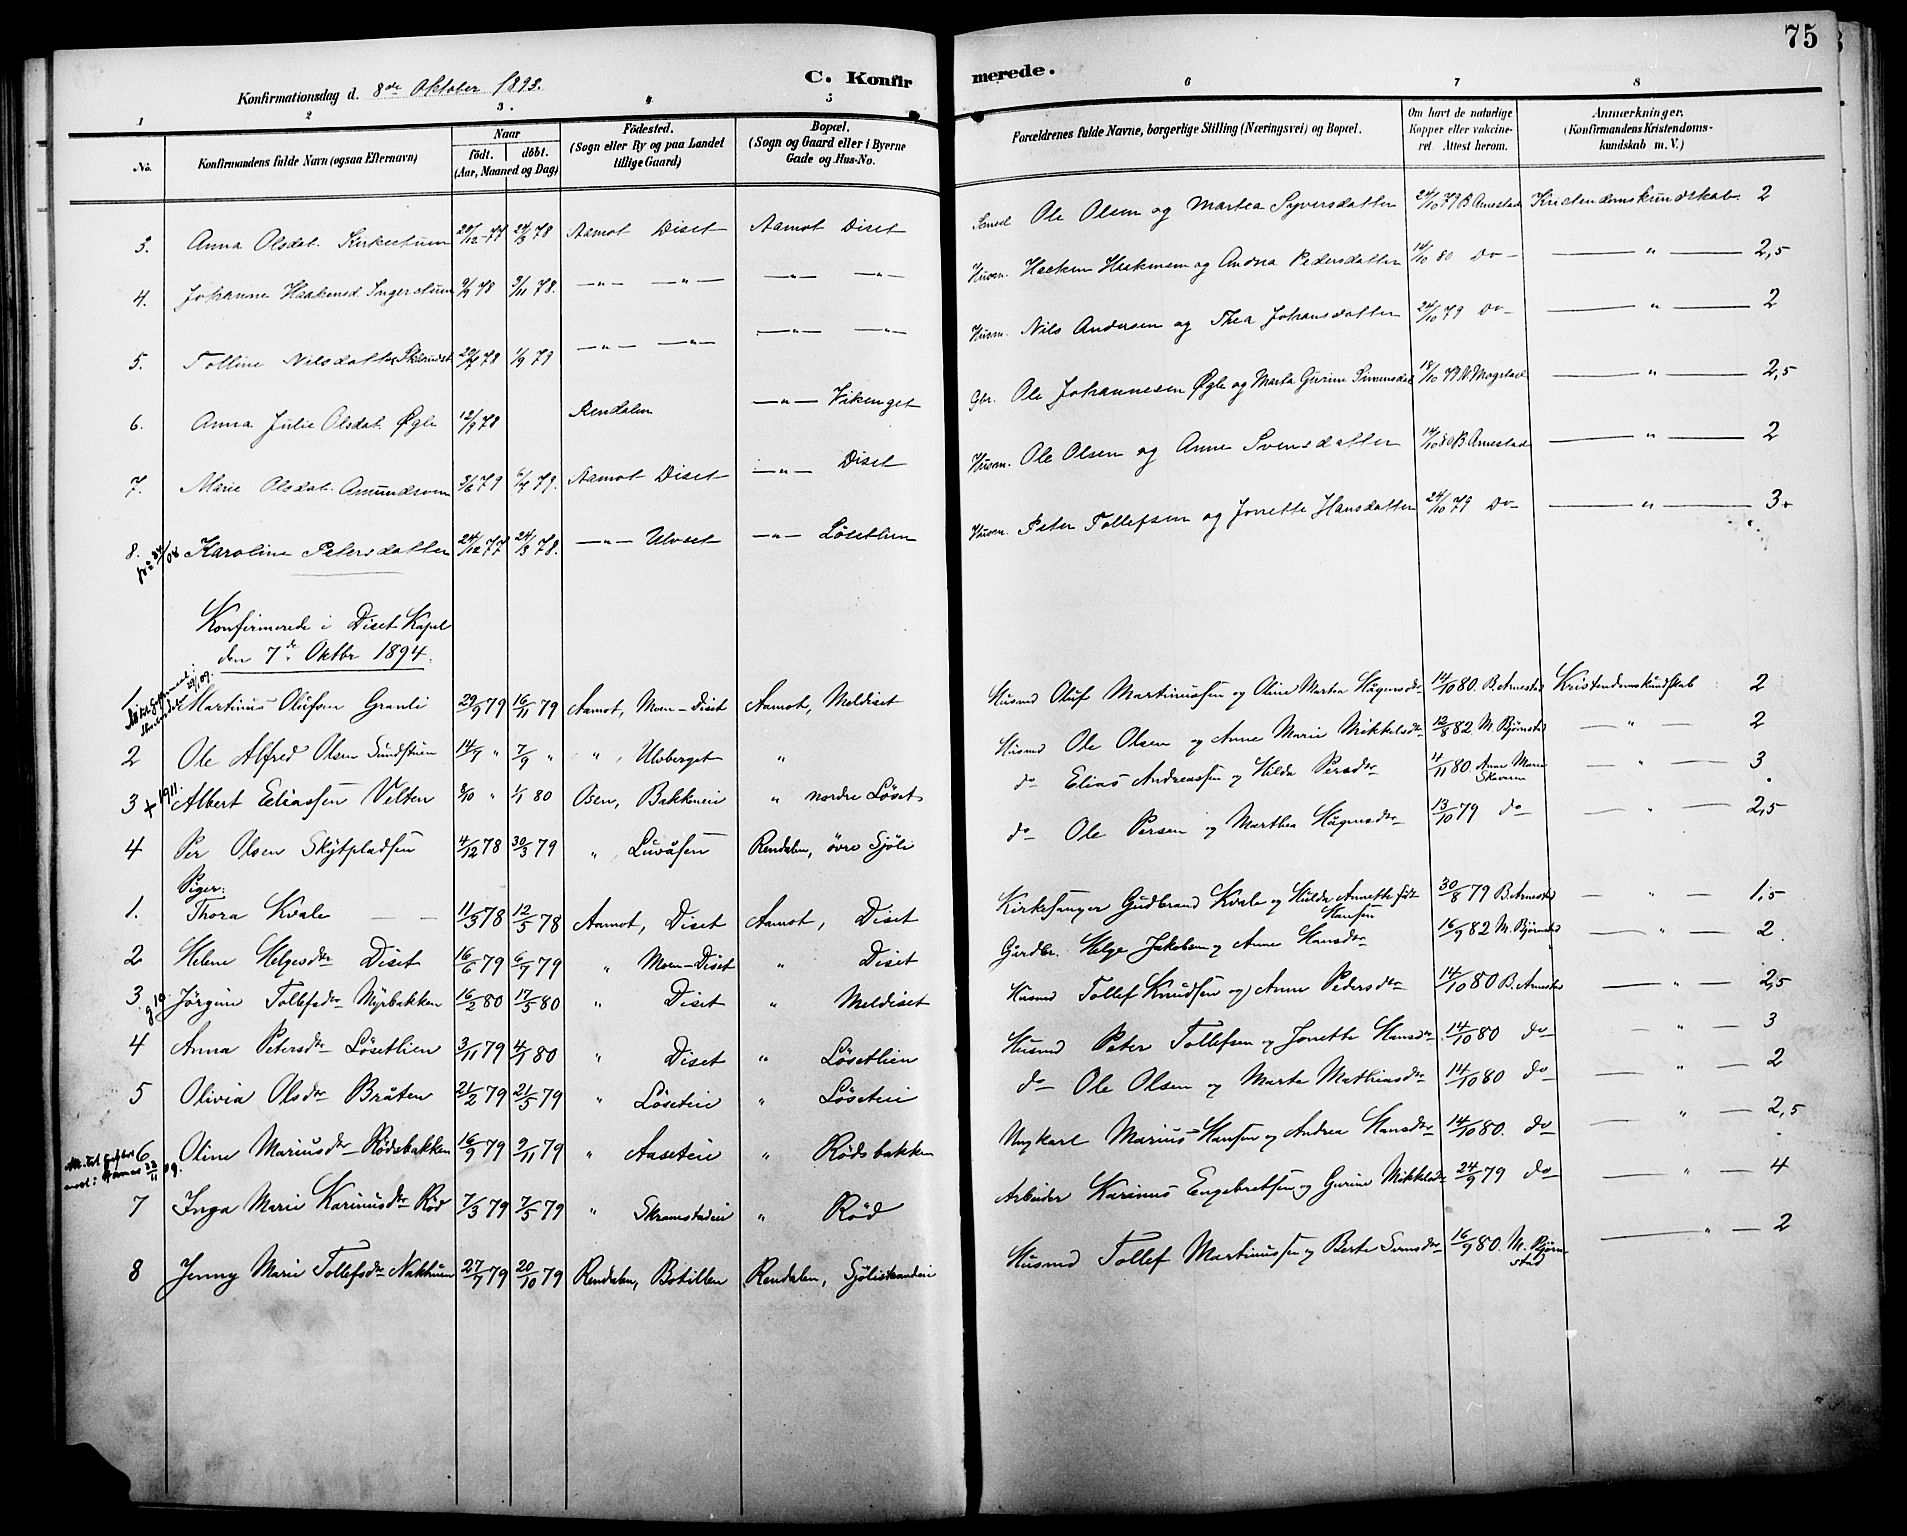 75
C. Konfir merede.
Konfirmationsdag d. 8de Oktober 1893.
1 2 3. 4 5 6 7 8
No. Konfirmandens fulde Navn (ogsaa Efternavn) Naar födt. döbt. (Aar, Maaned og Dag) Födested. (Sogn eller By og paa Landet tillige Gaard) Bopæl. (Sogn og Gaard eller i Byerne Gade og Hus-No. Forældrenes fulde Navne, borgerlige Stilling (Næringsvei) og Bopæl. Om havt de naturlige Kopper eller vaksineret Attest herom. Anmærkninger. (Konfirmandens Kristendomskundskab m. V.)
3. Anna Olsdat. Kirkestuen 20/12-77 24/3 78 Aamot Diset Aamot Diset Ole Olsen og Martea Syversdatter 24/10 79 B Arnestad Kristendomskundskab. 2
4. Johanne Haakensd. Ingerstuen 9/9 78 3/11 78. —„— —„— —„— —„— Husm. Haaken Haakensen og Andrea Pedersdatter 14/10 80 Do — „ — 2,5
5. Tolline Nilsdatter 1/9 79 —„— —„— —„— —„— Husm. Nils Andersen og Thea Johansdatter 24/10 79 Do — „ — 2
6. Anna Julie Olsdat. Øgle 12/9 78 Rendalen —„— Vikenget Gbr. Ole Johannesen Øgle og Marta Gurine Simensdat 18/10 79 — „ — 2,5
7. Marie Olsdat. Amundsveen 3/6 79 6/7 79. Aamot Diset —„— Diset Husm. Ole Olsen og Anne Svensdatter 14/10 80 B Arnestad — „ — 2
8. Karoline Petersdatter 24/12 77 24/3 78. —„— Ulvset —„— Løsetlien Husm. Peter Tollefsen og Jonette Hansdatter 24/10 79 Do — „ — 3.
Konfirmerede i Diset Kapel
den 7de Oktbr 1894.
1 Martinus Olufsen Granli 29/9 79 16/11 79 Aamot, Moen-Diset Aamot, Meldiset Husmd Oluf Martinussen og Oline Martea Hågensdr 14/10 80. B. Arnestad Kristendomskundskab 2
2 Ole Alfred Olsen Sundstuen 14/7 „ 7/9 „ „, Ulvberget „ Husmd Ole Olsen og Anne Marie Mikkelsdr 12/8 82. M. Bjørnstad — „ — 2
3 + 1911. Albert Eliassen Velten 3/10 „ 1/1 80 Osen, Bakkeneie „ nordre Løset do Elias Andreassen og Hilda Persdr 4/11 80. Anne Marie Skavern — „ — 3
4 Per Olsen Skytpladsen 4/12 78 30/3 79 „ Luvåsen Rendalen, øvre Sjöli do Ole Persen og Marthea Hågensdr 13/10 79 do — „ — 2,5
Piger:
1. Thora Kvale 11/3 78 12/5 78 Aamot, Diset Aamot, Diset Kirkesanger Gudbrand Kvale og Hulda Annette født Hansen 30/8 79 B. Arnestad — „ — 1,5
2 Helene Helgesdr Diset 16/6 79 6/7 79 „ Moen-Diset „ Diset Gårdbr. Helge Jakobsen og Anne Hansdr 16/9 82 M. Bjørnstad — „ — 2
3 Jörgine Tollefsdr Myrbakken 16/2 80 17/5 80 „ Diset „ Meldiset Husmd Tollef Knudsen og Anne Pedersdr 14/10 80 B. Arnestad — „ — 2,5
4 Anna Petersdr Lösetlien 3/11 79 4/1 80 „ Diset „ Løsetlien Husmd Peter Tollefsen og Jonette Hansdr 14/10 80 do — „ — 3
5 Olivia Olsdr Bråten 21/2 79 21/5 79 „ Løseteie „ Løseteie do Ole Olsen og Marte Mathiasdr 14/10 80 do — „ — 2
6 Oline Mariusdr Rödsbakken 16/9 79 9/11 79 „ Aaseteie „ Rødsbakken Ungkarl Marius Hansen og Andrea Hansdr 14/10 80. do — „ — 2,5
7 Inga Marie Karinusdr Röd 7/3 79 7/5 79 „ Skramstadeie „ Rød Arbeider Karinus Engebretsen og Gurine Mikkelsdr 24/9 79 do — „ — 4
8 Jenny Marie Tollefsdr 27/7 79 20/10 79 Rendalen, Botillen Rendalen, Sjölistrandeie Husmd Tollef Martinussen og Berte Svensdr 16/9 80. M. Bjørnstad — „ — 2